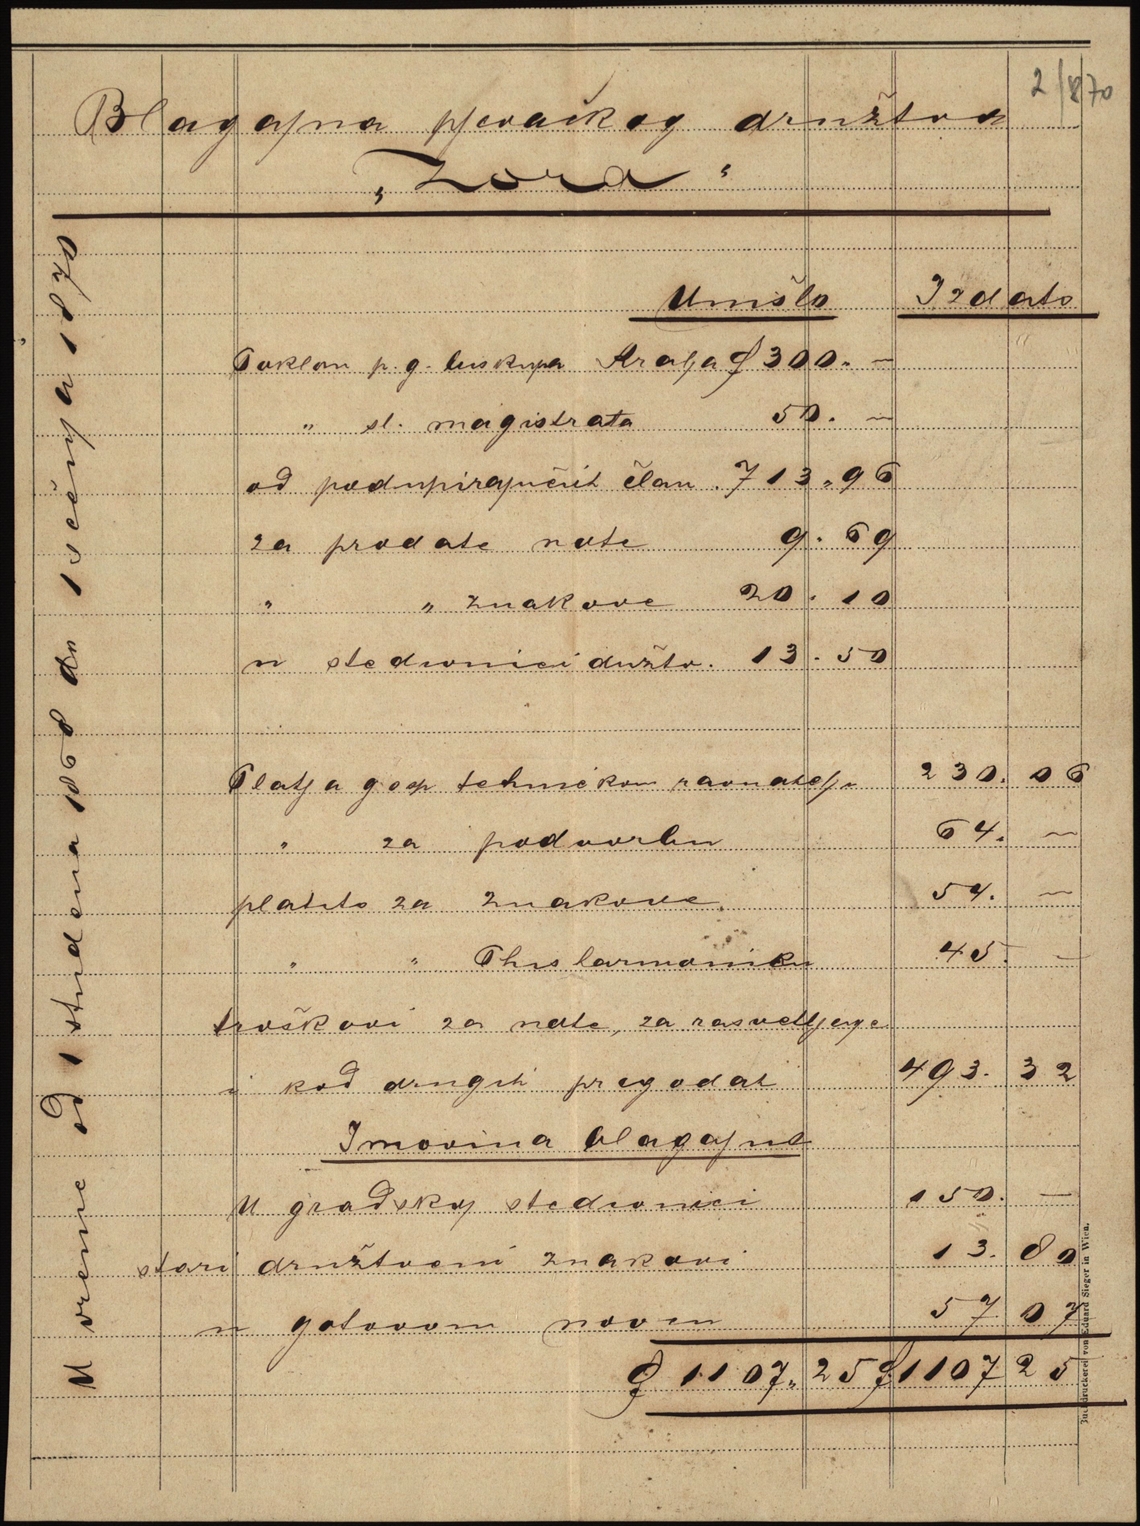 2/870
Blagajna pjevačkog družtva
„Zora“
U vreme od 1 studena 1868 do 1 sečnja 1870
Umišlo Izdato
Poklon p. g. biskupa Kralja f 300. —
" sl. magistrata 50. —
od podupirajućih član. 713. 96
za prodate note 9. 69
" " znakove 20. 10
u štedionici družtv. 13. 50
Platja god tehničkom ravnatelju 230. 06
" za podvorbu 64. —
platito za znakove 54. —
" " Phisharmoniku 45. —
troškovi za note, za rasvetljenje
i kod drugih prigodah 493. 32
Imovina blagajne
U gradskoj štedionici 150. —
stari družtveni znakovi 13. 80
u gotovom novcu 57 07
f 1107. 25 f 1107 25
Buchdruckerei von Eduard Sieger in Wien.